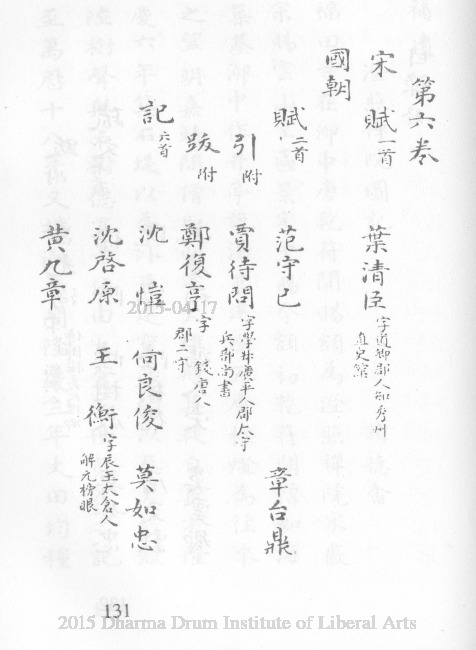 第六卷
宋 賦一首 葉清臣字道卿郡人知秀州直史館
國朝
賦二首 范守己 章台鼎
引附 賈待問字學林廣平人郡太守兵部尚書
跋附 鄭復亨字錢唐人郡二守
記六首 沈愷 何良俊 莫如忠
沈啓原 王衡字辰玉太倉人解元榜眼
黃九章
131
2015-04-17
2015 Dharma Drum Institute of Liberal Arts